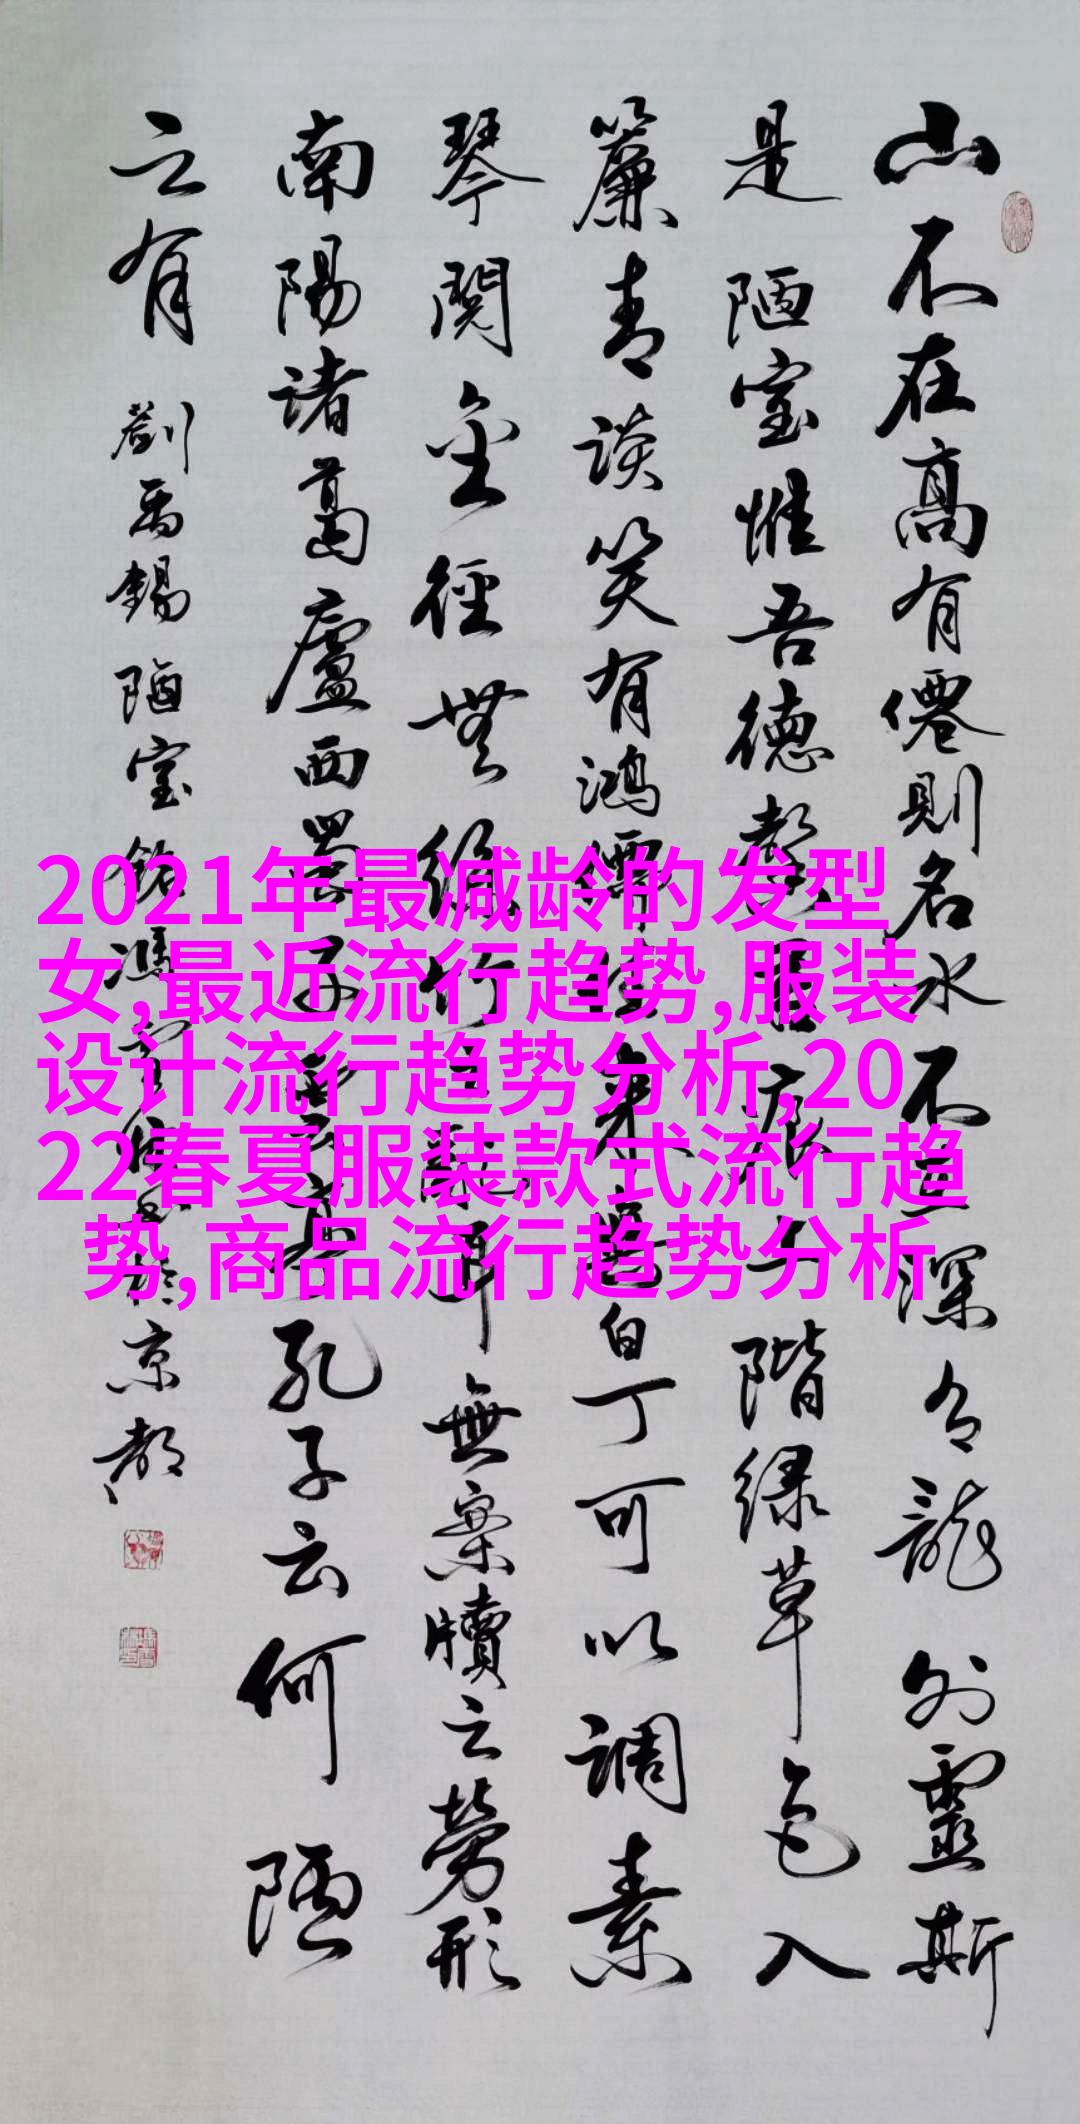 山不在高有僊則名水不在深有龍則靈斯
是陋室惟吾德馨苔痕上階緑草色入
簾青談笑有鴻儒往來無白丁可以調素
琴閱金經無絲竹之亂耳無案牘之勞形
南陽諸葛廬西蜀子雲亭孔子云何陋
之有 劉禹錫陋室銘馮於京都
2021年最减龄的发型
女,最近流行趋势,服装
设计流行趋势分析,20
22春夏服装款式流行趋
势,商品流行趋势分析